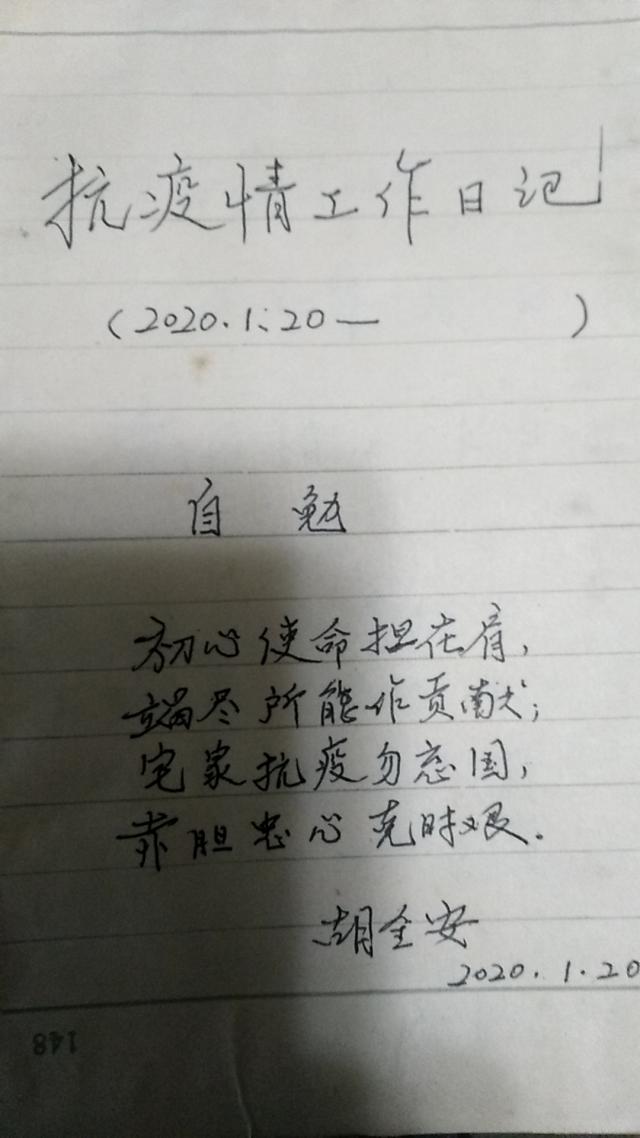 抗疫情工作日记
（2020.1.20—　　　）
自勉
初心使命担在肩，
竭尽所能作贡献；
宅家抗疫勿忘国，
赤胆忠心克时艰.
胡全安
2020.1.20
148